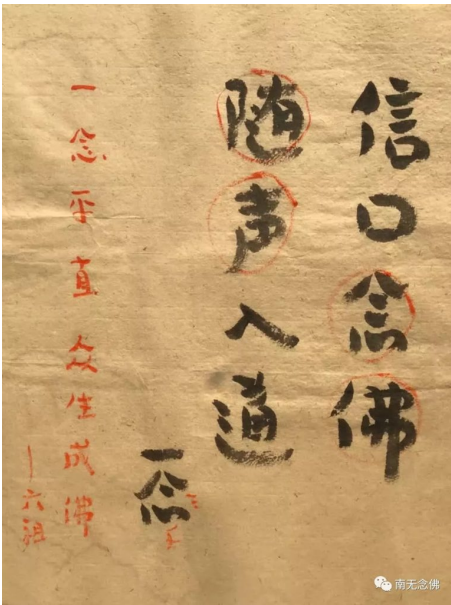 信口念佛
随声入道
一念
一念平直众生成佛
—六祖
南无念佛